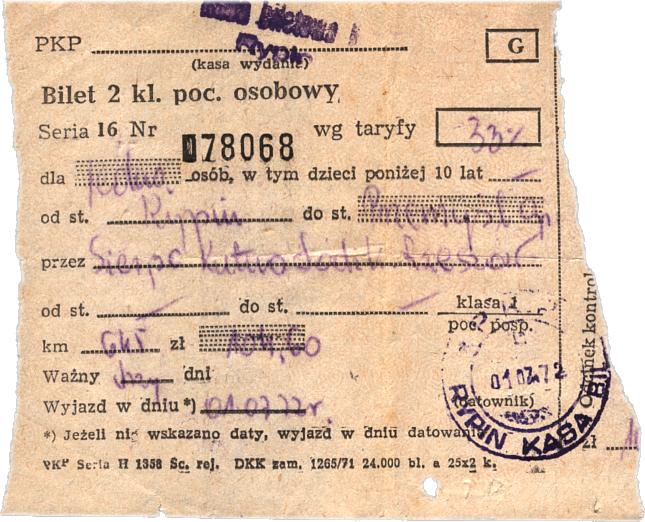 PKP
Rypin
G
(kasa wydanie)
Bilet 2 kl. poc. osobowy
Seria 16 Nr 078068 wg taryfy 33%
dla jedna osób, w tym dzieci poniżej 10 lat —
od st. Rypin do st. Przemyśl Gł
przez Sierpc Kutno Łódź Rzeszów
od st. — do st. — klasa 1
poc. posp.
km 645 zł 104,60
Ważny trzy dni
Wyjazd w dniu *) 01.07.72 r.
01 07 72
(datownik)
RYPIN KASA BIL
*) Jeżeli nie wskazano daty, wyjazd w dniu datowani
PKP Seria H 1358 Śc. rej. DKK zam. 1265/71 24.000 bl. a 25x2 k.
Odcinek kontrol
zł